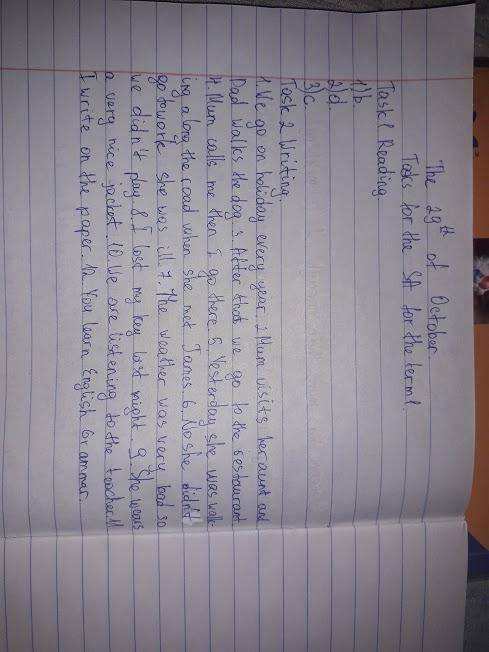 The 29th of October.
Tasks for the SA for the term 1.
Task 1 Reading
1) b.
2) d
3) c.
Task 2 Writing.
1. We go on holiday every year. 2 Mum visits her aunt and
Dad walks the dog 3 After that we go to the restaurant
4. Mum calls me then I go there 5. Yesterday she was walk-
ing along the road when she met James 6. No she didn't
go to work she was ill 7. The weather was very bad so
we didn't play 8. I lost my key last night. 9. She wears
a very nice jacket. 10. We are listening to the teacher 11
I write on the paper. 12. You learn English Grammar.